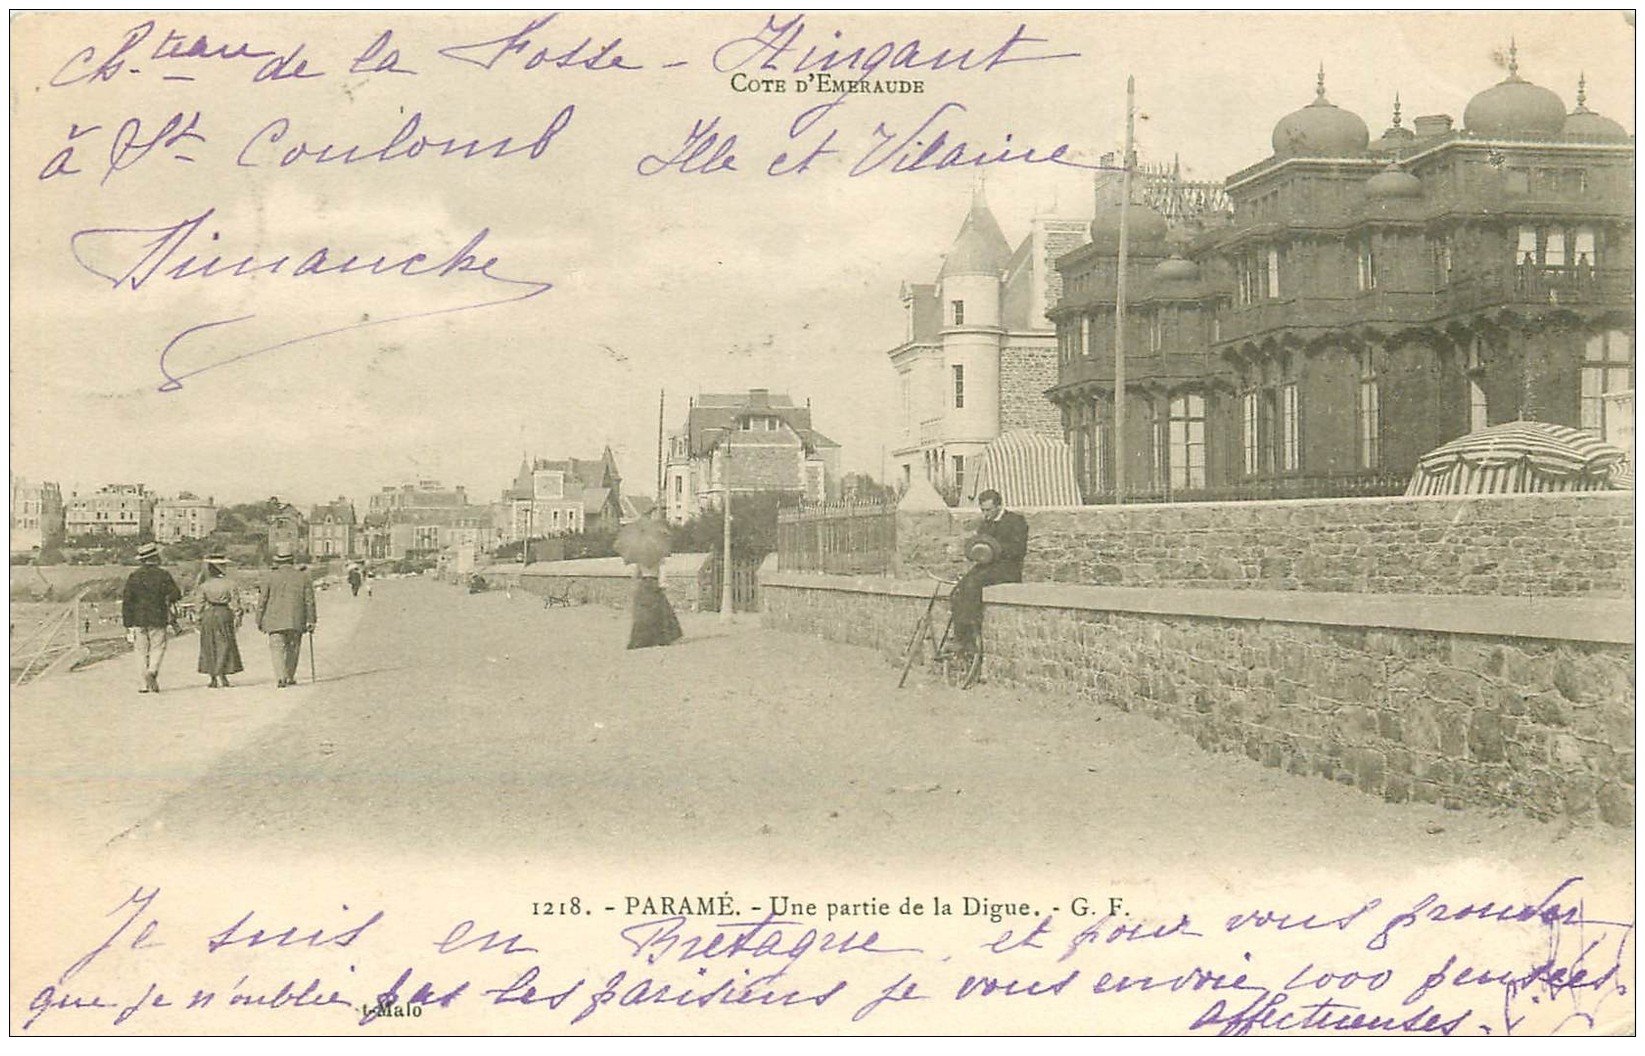 Ch.teau de la Fosse - Hingant
COTE D'EMERAUDE
à St Coulomb Ille et Vilaine
Dimanche
1218. - PARAMÉ. - Une partie de la Digue. - G. F.
Je suis en Bretagne, et pour vous prouver
que je n'oublie pas les parisiens je vous envoie 1000 pensées
affectueuses.
t-Malo